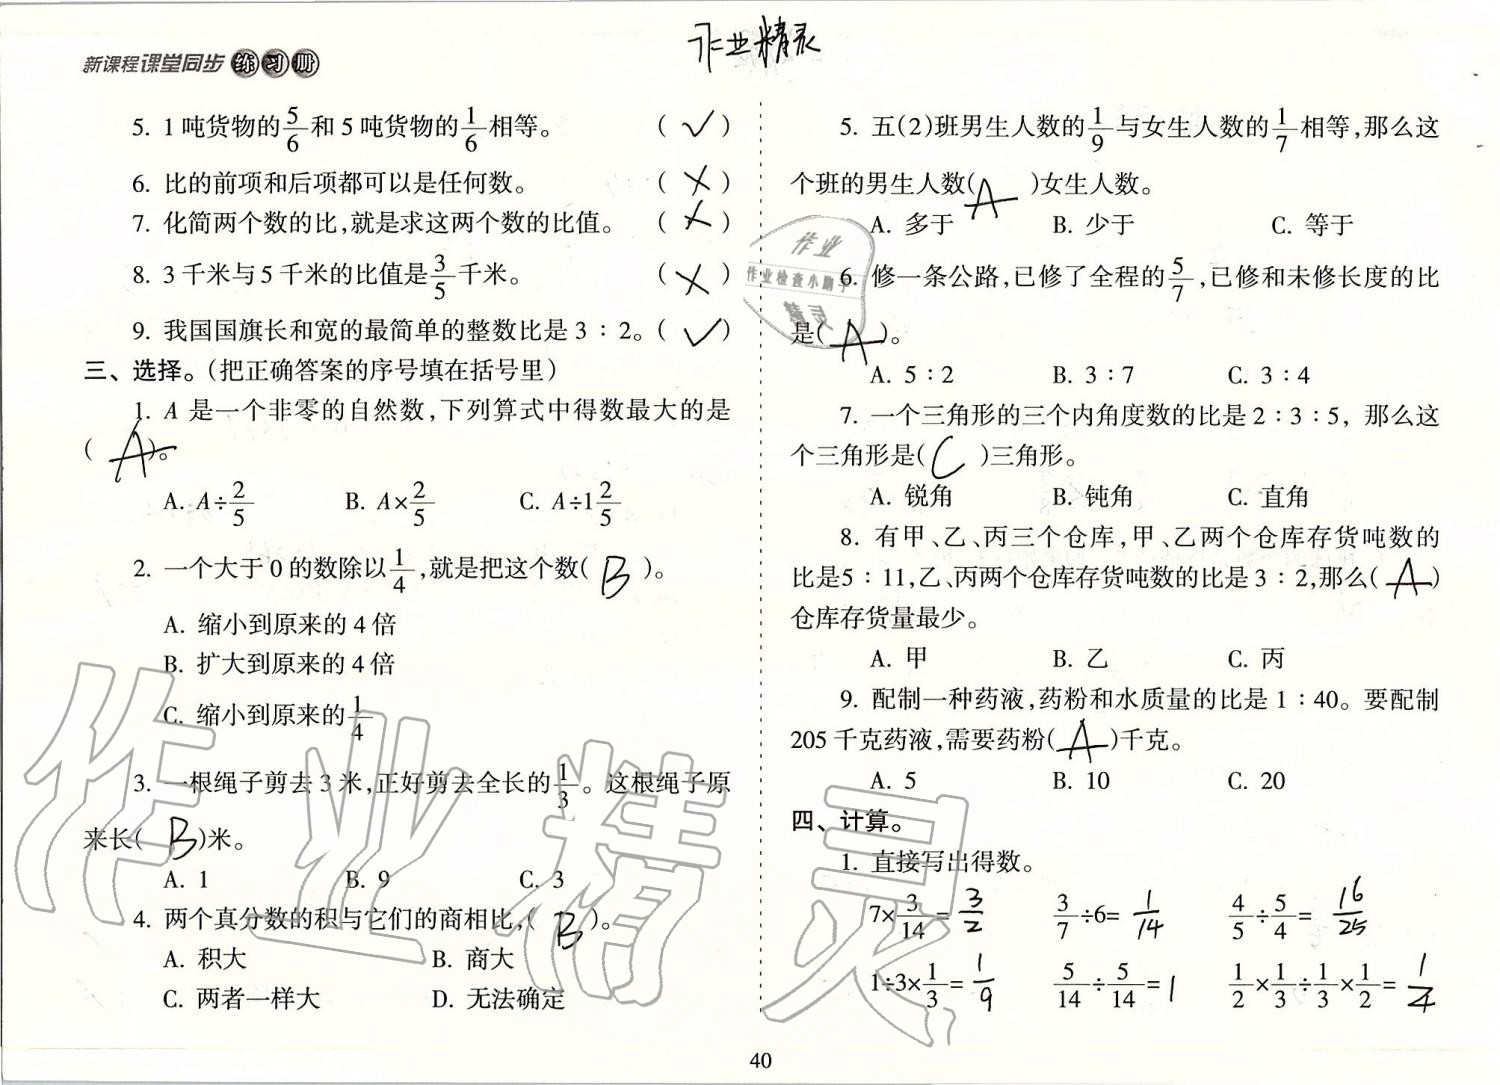 作业精灵
新课程课堂同步练习册
5. 1吨货物的5/6和5吨货物的1/6相等。 (√)
6. 比的前项和后项都可以是任何数。 (×)
7. 化简两个数的比,就是求这两个数的比值。 (×)
8. 3千米与5千米的比值是3/5千米。 (×)
9. 我国国旗长和宽的最简单的整数比是3∶2。(√)
三、选择。(把正确答案的序号填在括号里)
1. A是一个非零的自然数,下列算式中得数最大的是
(A)。
A. A÷2/5 B. A×2/5 C. A÷1 2/5
2. 一个大于0的数除以1/4,就是把这个数(B)。
A. 缩小到原来的4倍
B. 扩大到原来的4倍
C. 缩小到原来的1/4
3. 一根绳子剪去3米,正好剪去全长的1/3。这根绳子原
来长(B)米。
A. 1 B. 9 C. 3
4. 两个真分数的积与它们的商相比,(B)。
A. 积大 B. 商大
C. 两者一样大 D. 无法确定
5. 五(2)班男生人数的1/9与女生人数的1/7相等,那么这
个班的男生人数(A)女生人数。
A. 多于 B. 少于 C. 等于
作业
作业检查小助手
精灵
6. 修一条公路,已修了全程的5/7,已修和未修长度的比
是(A)。
A. 5∶2 B. 3∶7 C. 3∶4
7. 一个三角形的三个内角度数的比是2∶3∶5,那么这
个三角形是(C)三角形。
A. 锐角 B. 钝角 C. 直角
8. 有甲、乙、丙三个仓库,甲、乙两个仓库存货吨数的
比是5∶11,乙、丙两个仓库存货吨数的比是3∶2,那么(A)
仓库存货量最少。
A. 甲 B. 乙 C. 丙
9. 配制一种药液,药粉和水质量的比是1∶40。要配制
205千克药液,需要药粉(A)千克。
A. 5 B. 10 C. 20
四、计算。
1. 直接写出得数。
7×3/14=3/2 3/7÷6=1/14 4/5÷5/4=16/25
1÷3×1/3=1/9 5/14÷5/14=1 1/2×1/3÷1/3×1/2=1/4
作业精灵
40